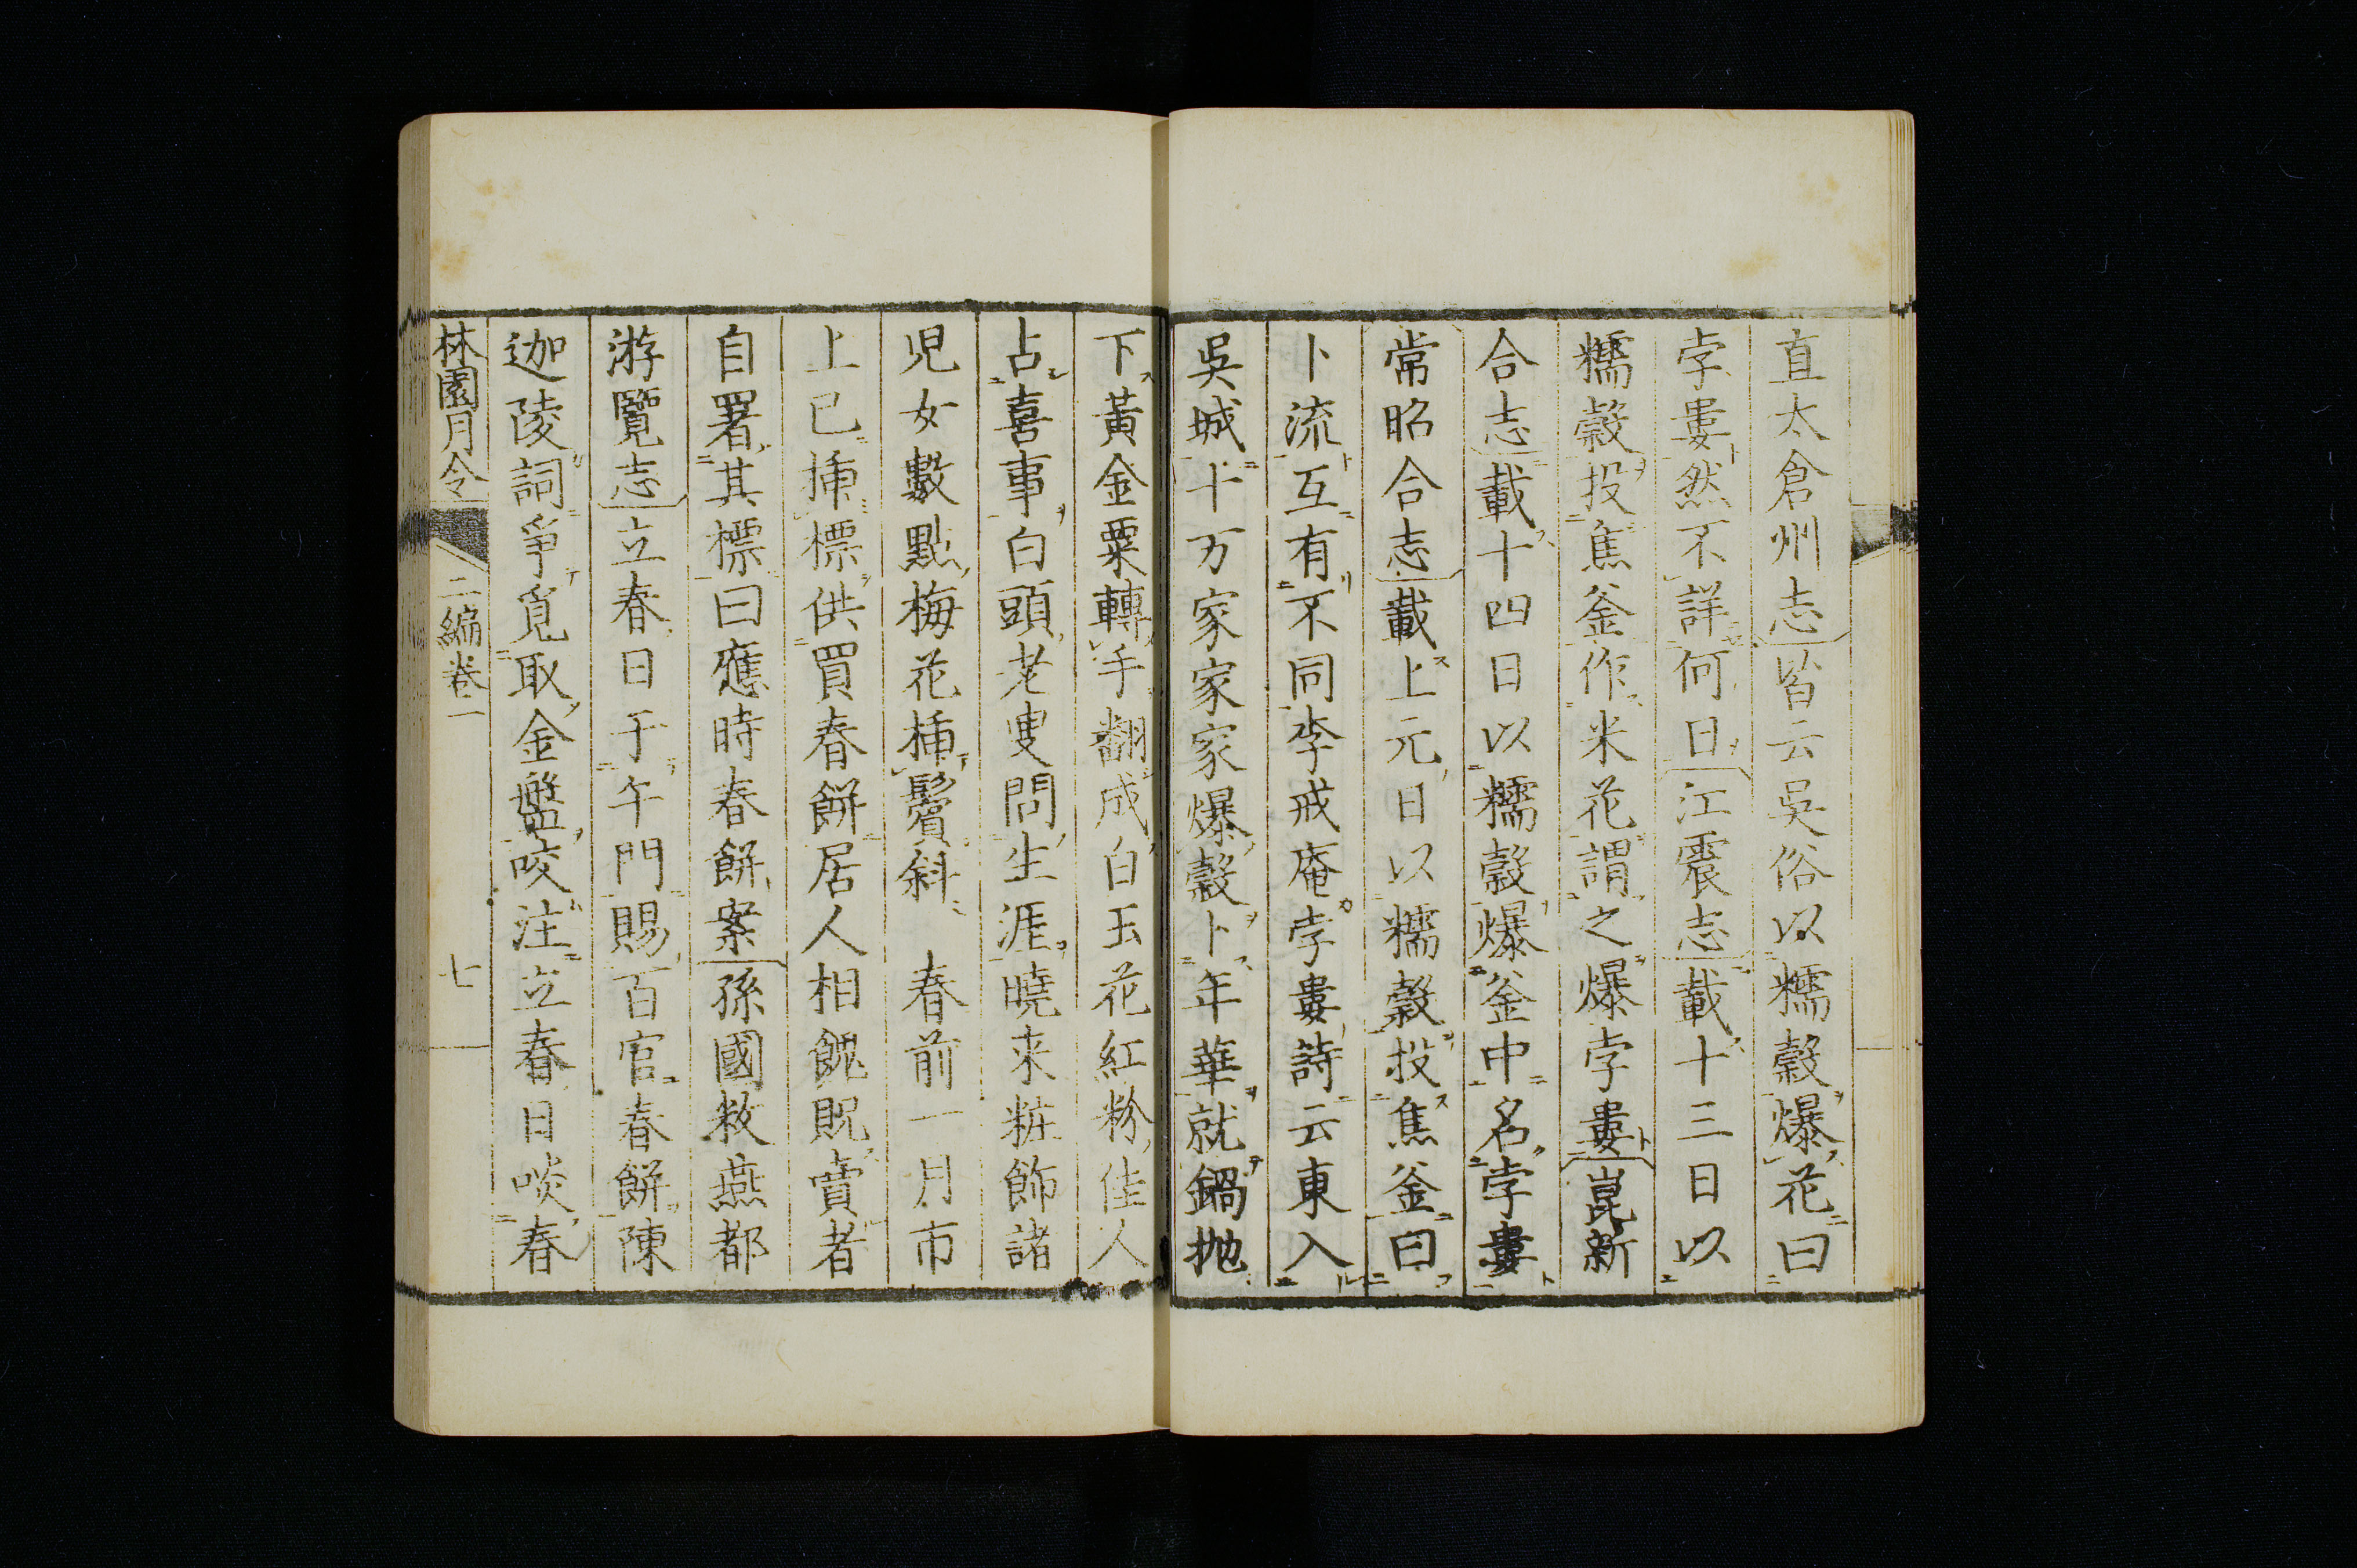 直太倉州志皆云吳俗以糯穀爆花曰
孛婁然不詳何日江震志載十三日以
糯穀投焦釜作米花謂之爆孛婁崑新
合志載十四日以糯穀爆釜中名孛婁
常昭合志載上元日以糯穀投焦釜曰
卜流互有不同李戒庵孛婁詩云東入
吳城十万家家家爆穀卜年華就鍋抛
下黃金粟轉手翻成白玉花紅粉佳人
占喜事白頭老叟問生涯曉来粧飾諸
児女數點梅花揷鬢斜　春前一月市
上已揷標供買春餅居人相餽貺賣者
自署其標曰應時春餅案孫國敉燕都
游覽志立春日于午門賜百官春餅陳
迦陵詞爭覓取金盤咬注立春日啖春
林園月令　二編卷一　七